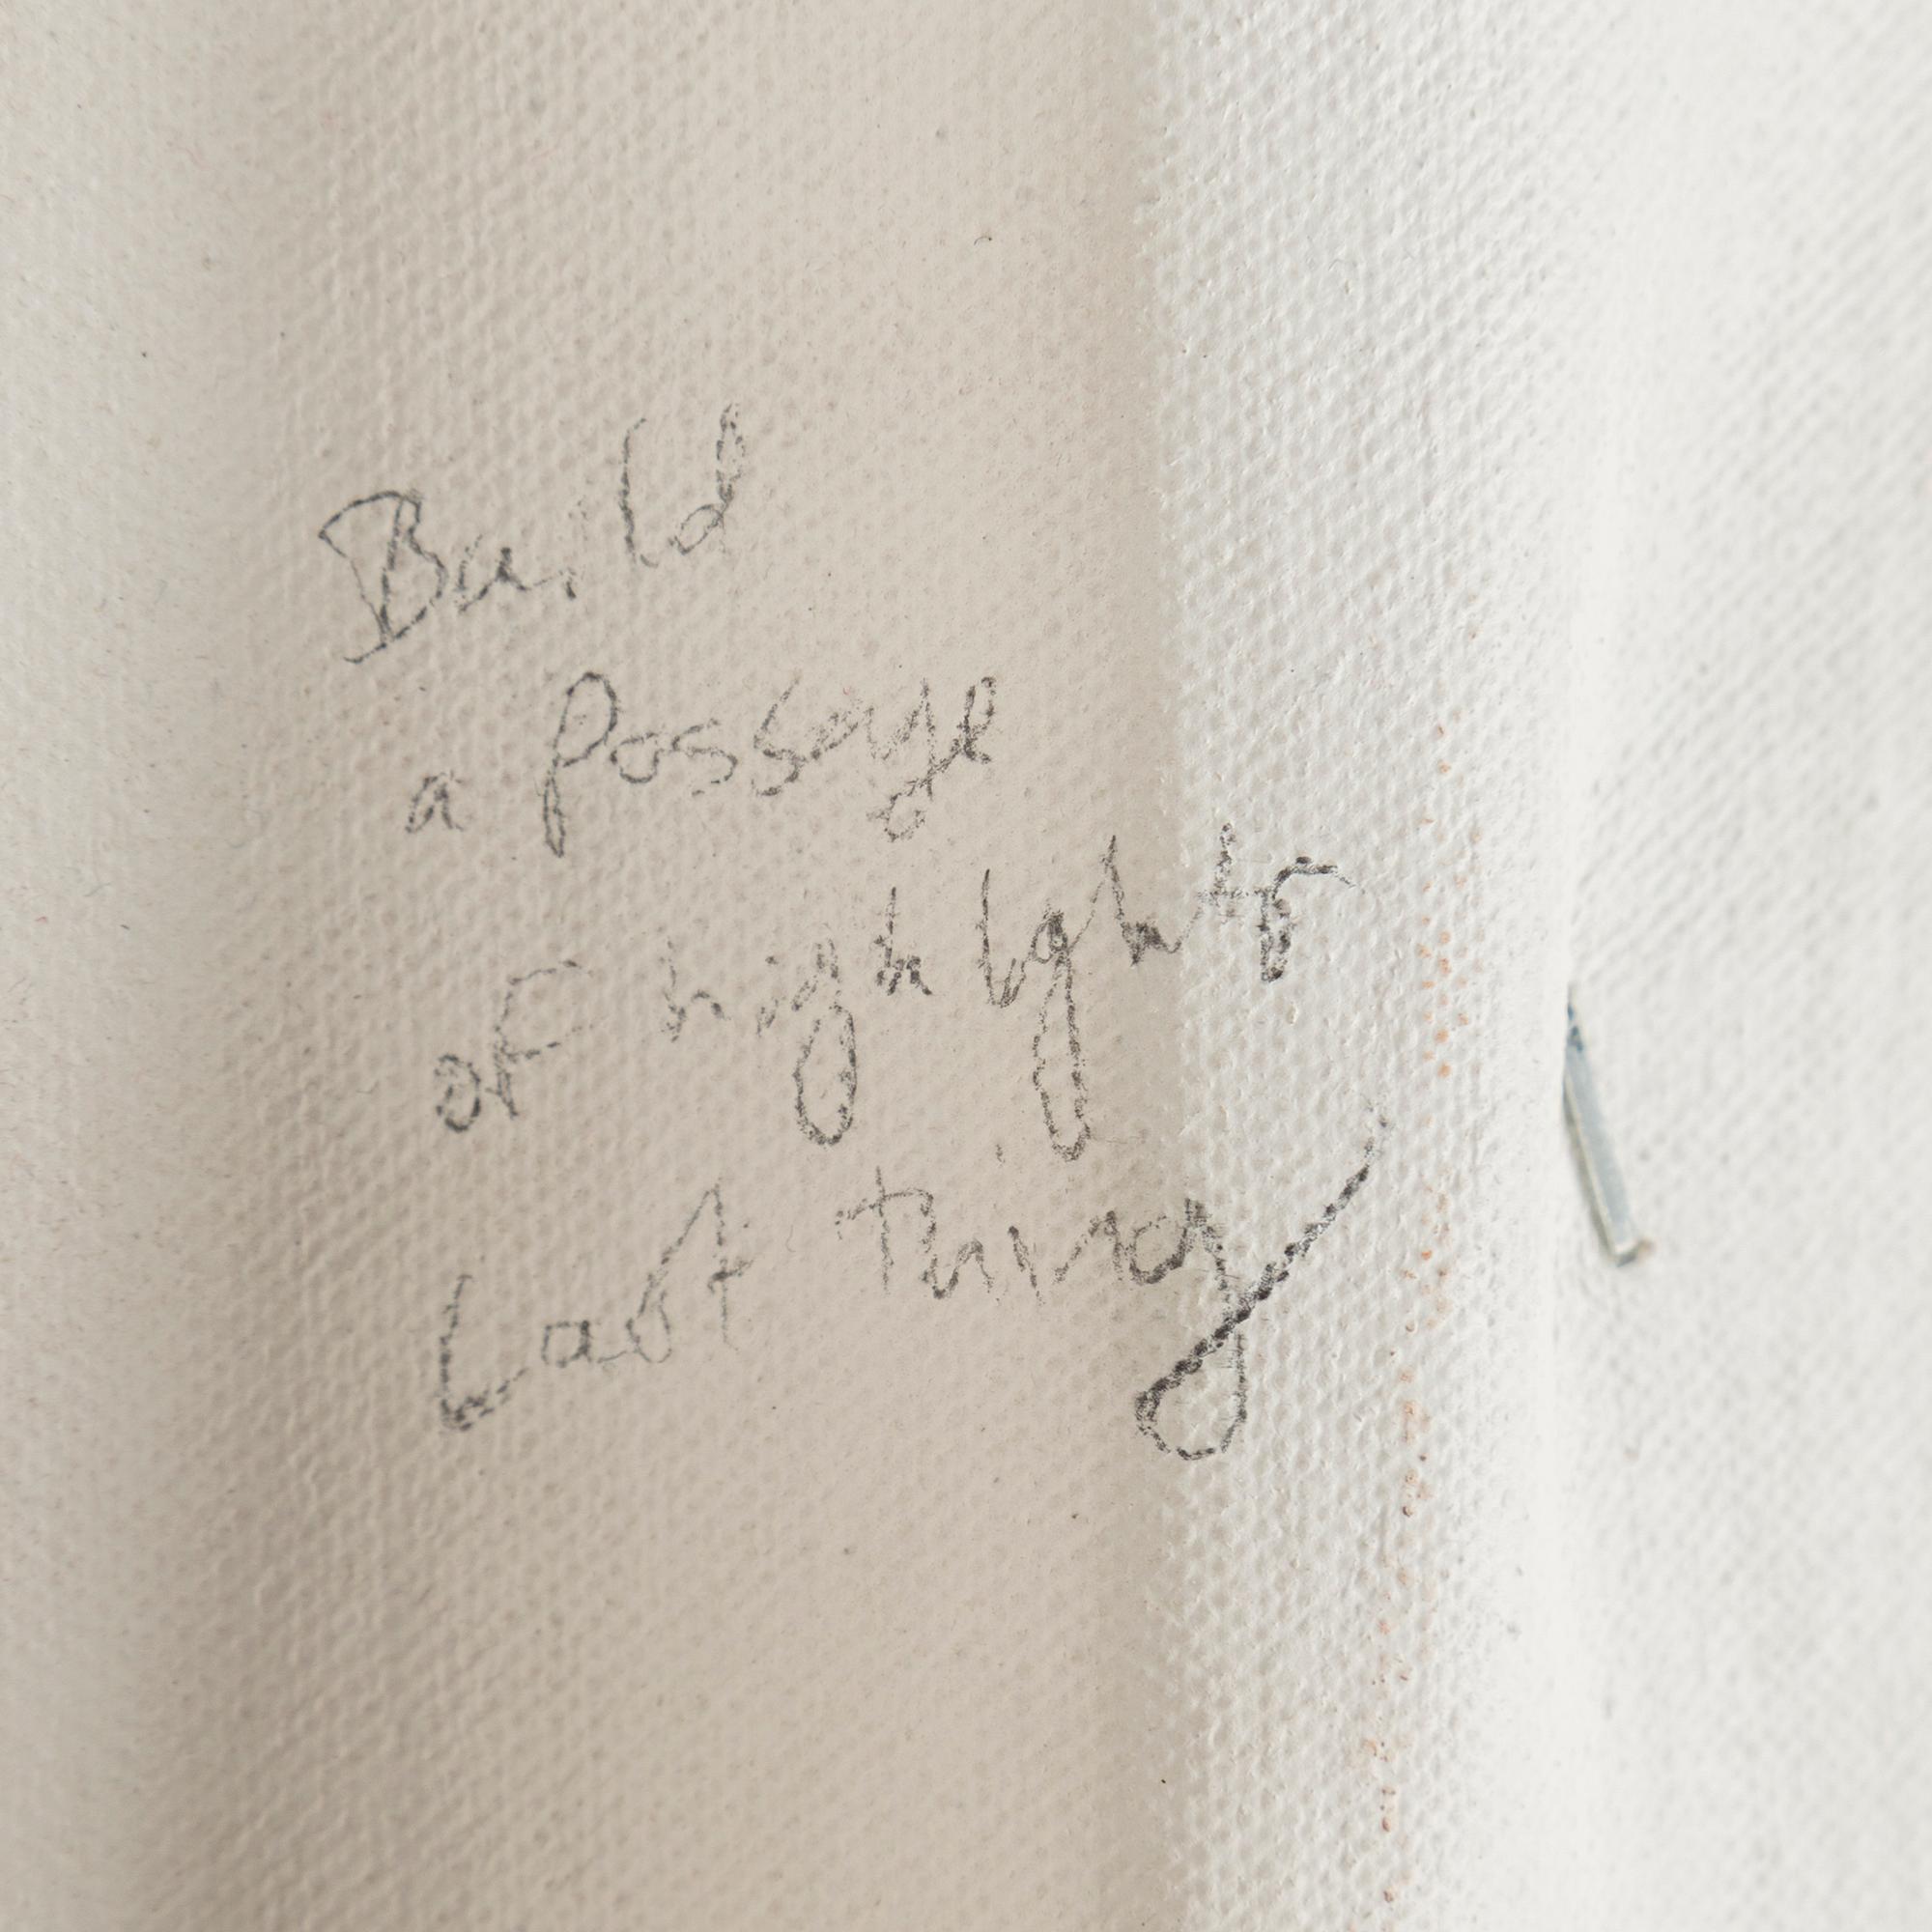 Build
a passage
of high lights
Last thing